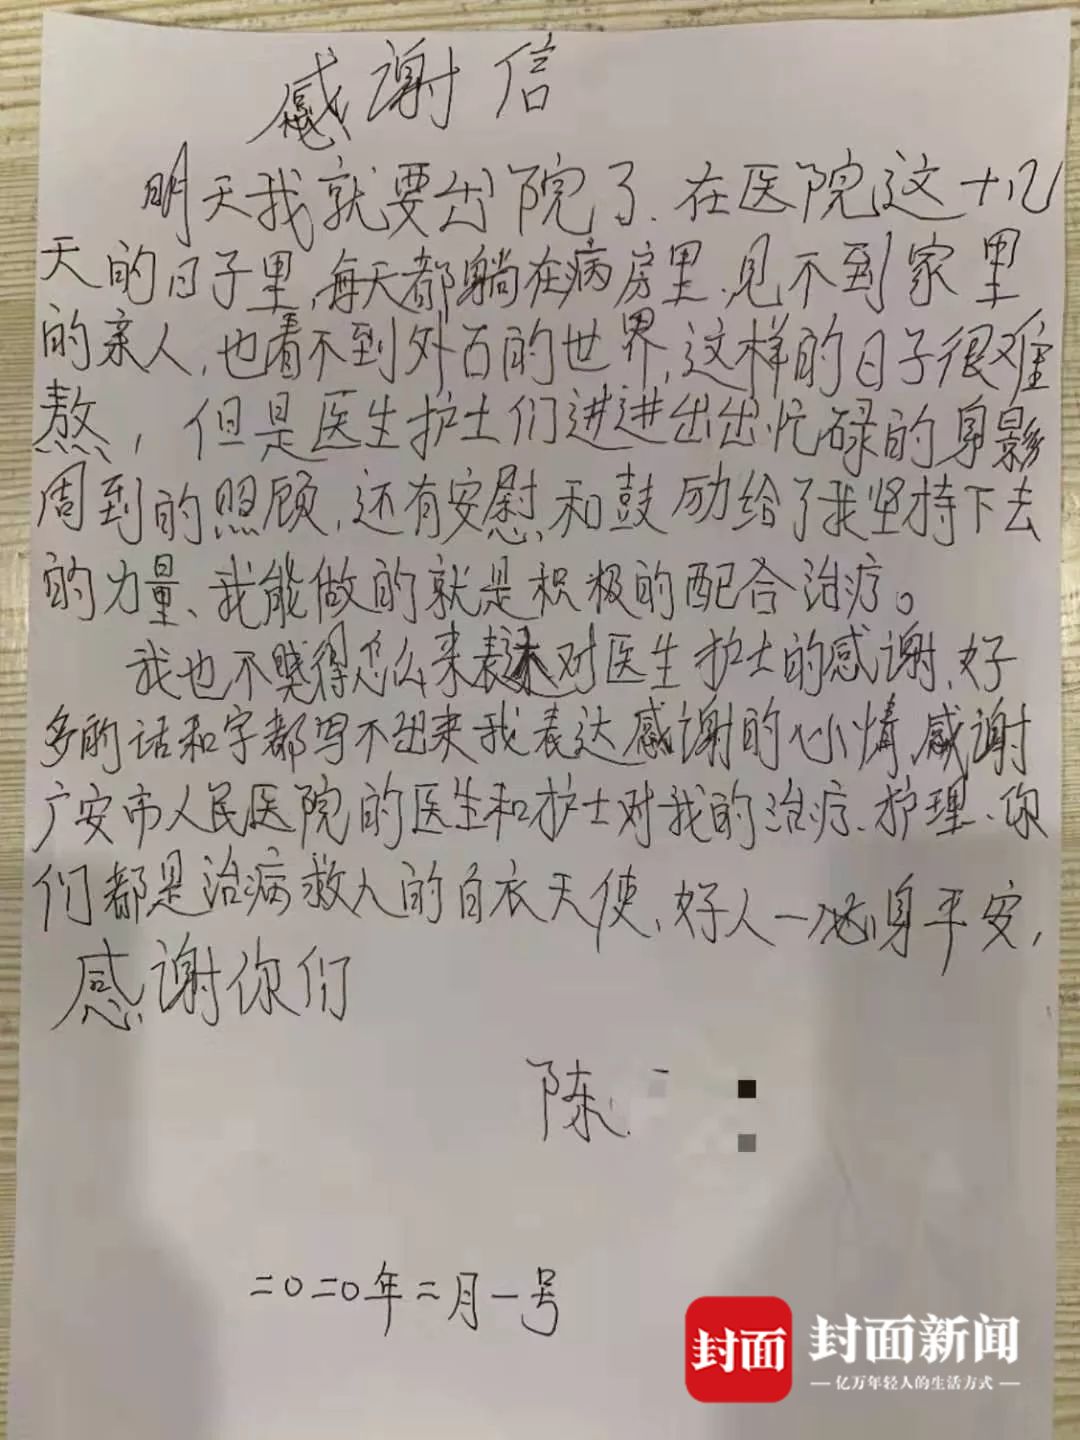 感谢信
明天我就要出院了.在医院这十几
天的日子里,每天都躺在病房里.见不到家里
的亲人,也看不到外面的世界,这样的日子很难
熬,但是医生护士们进进出出忙碌的身影
周到的照顾,还有安慰、和鼓励给了我坚持下去
的力量、我能做的就是积极的配合治疗。
我也不晓得怎么来表达对医生护士的感谢、好
多的话和字都写不出来我表达感谢的心情感谢
广安市人民医院的医生和护士对我的治疗、护理、你
们都是治病救人的白衣天使、好人一身平安,
感谢你们
陈
二〇二〇年二月一号
封面
封面新闻
亿万年轻人的生活方式